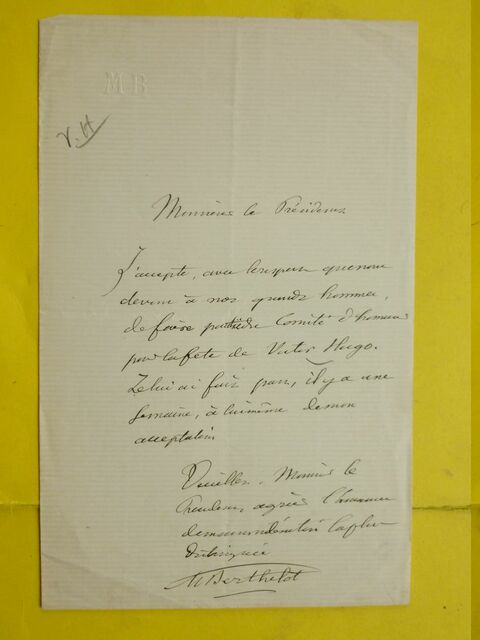 MB
V. H
Monsieur le Président
J'accepte, avec le respect que nous
devons à nos grands hommes,
de faire partie du Comité d'honneur
pour la fête de Victor Hugo.
Je lui ai fait part, il y a une
semaine, à lui même de mon
acceptation
Veuillez, Monsieur le
Président agréer l'assurance
de ma considération la plus
distinguée
M Berthelot